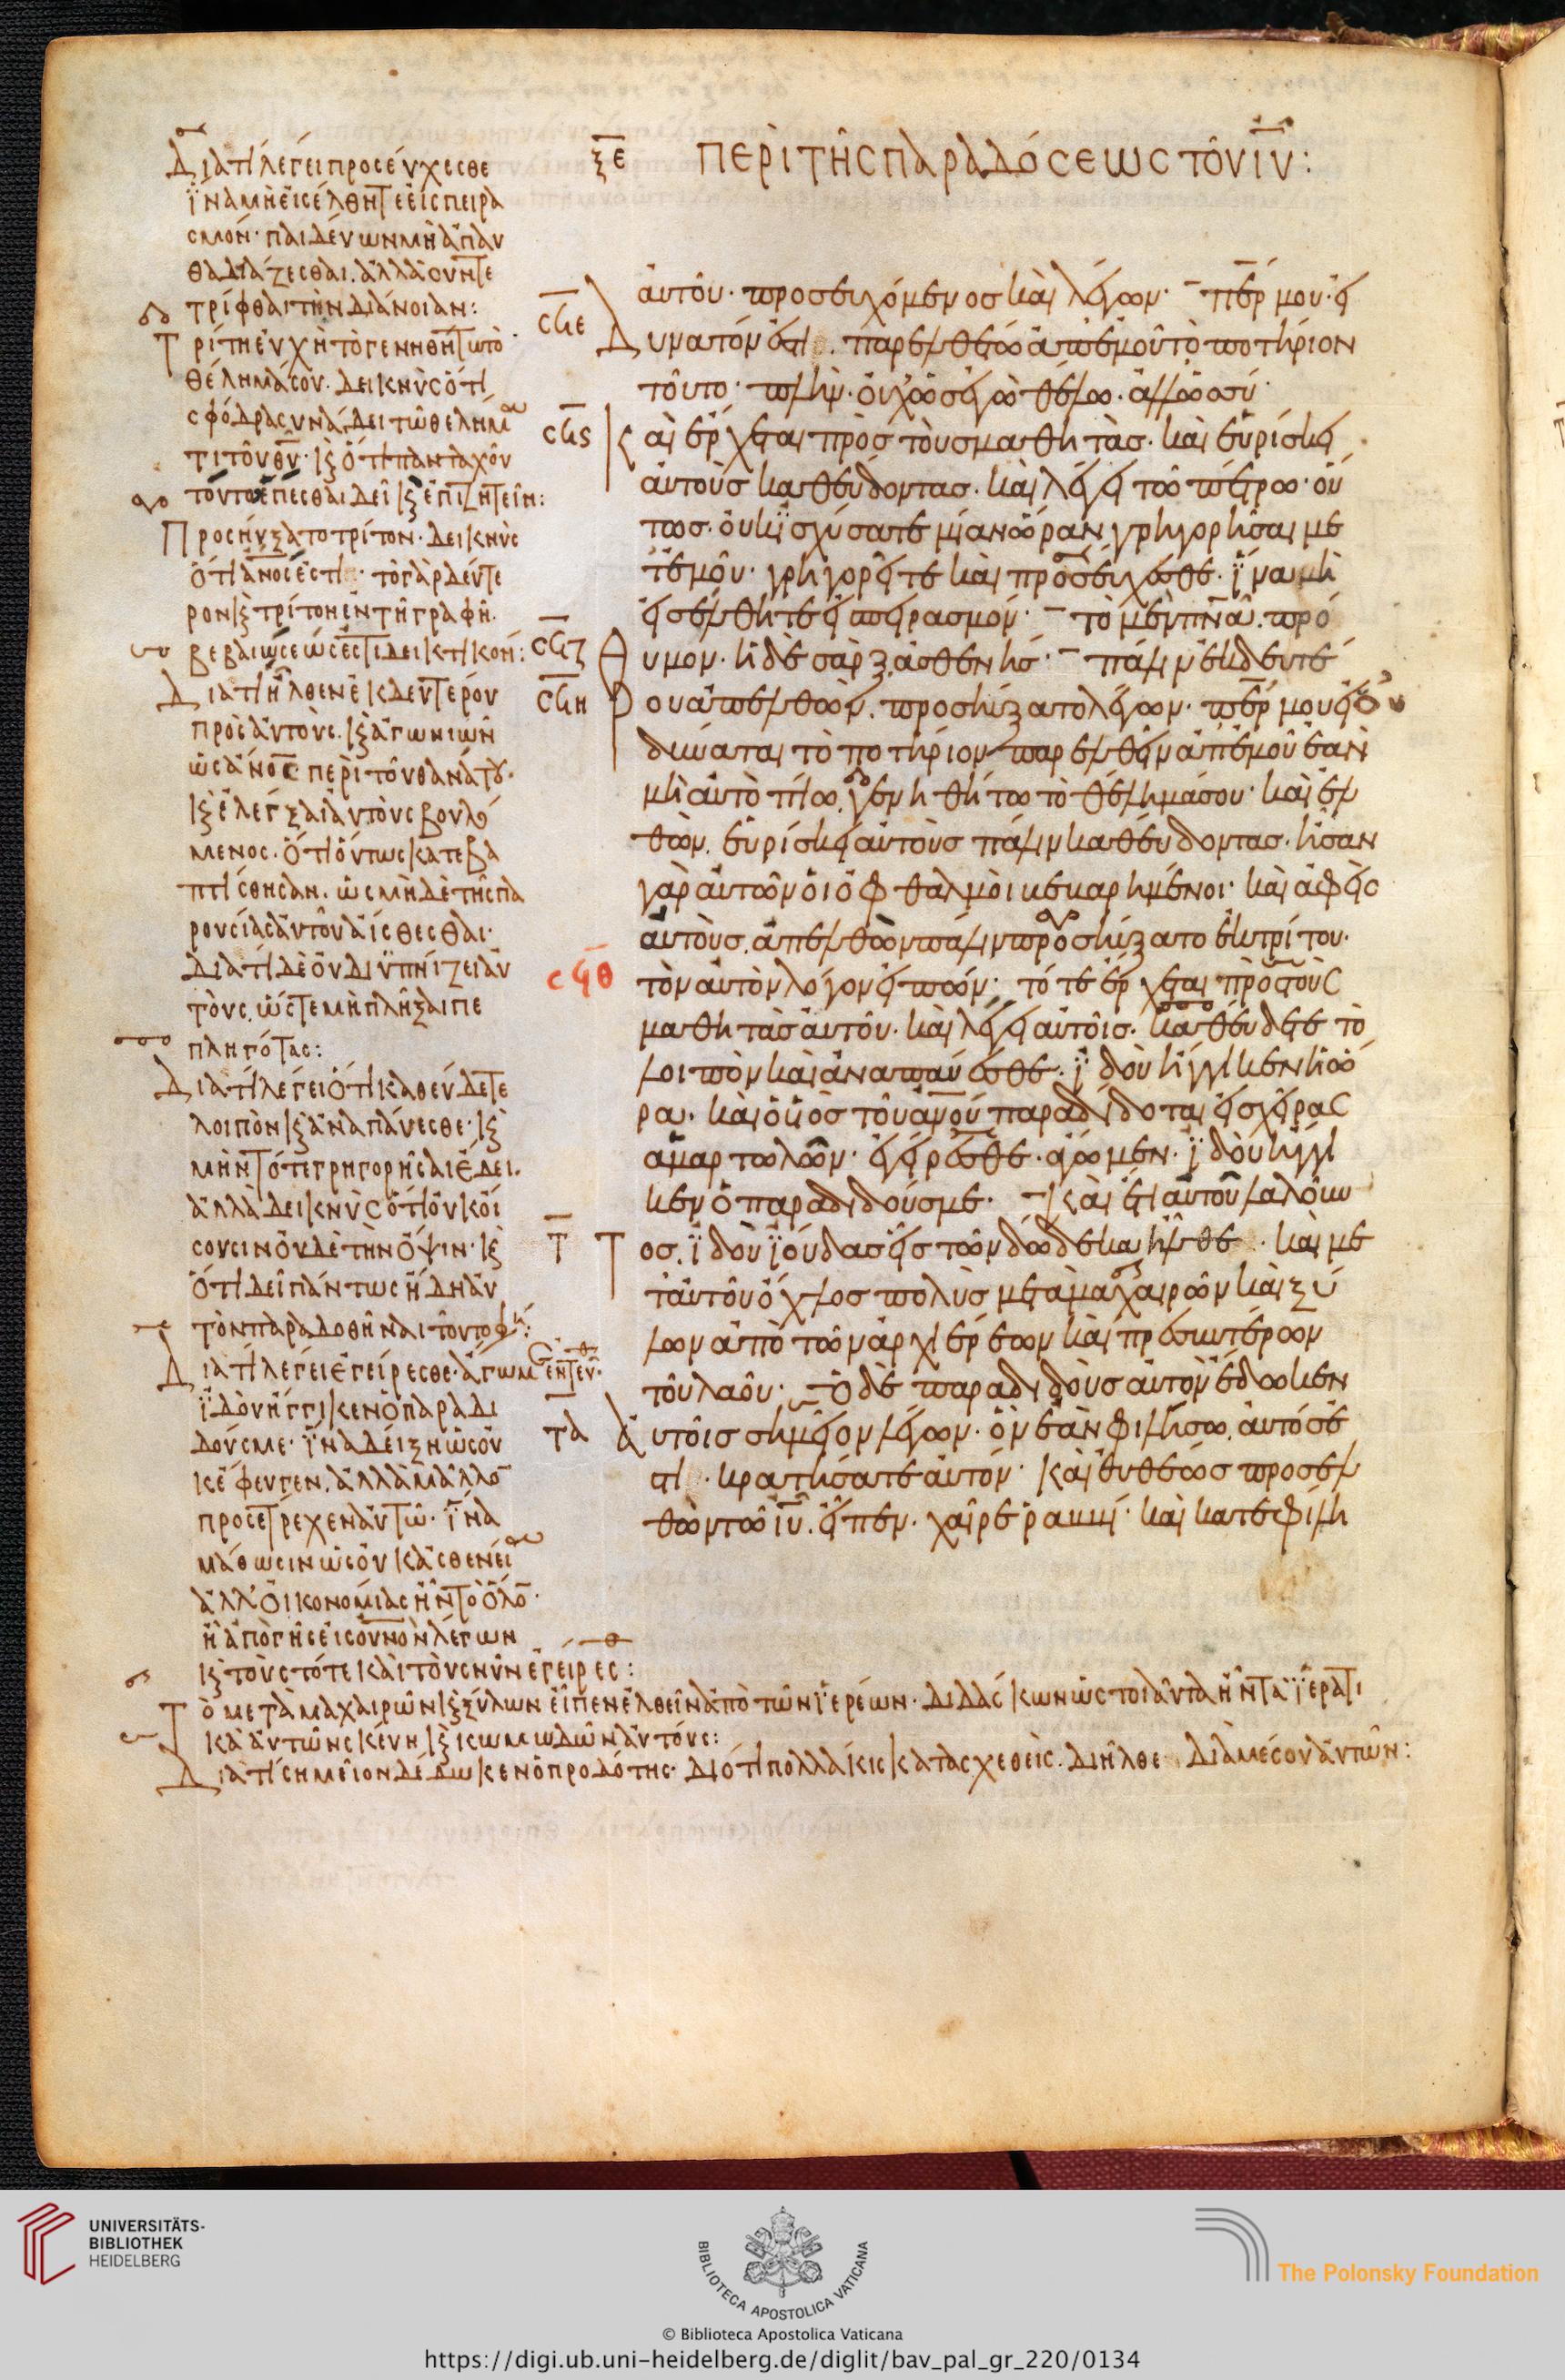 ξε περὶ τῆς παραδόσεως τοῦ ιυ:
Διατί λέγει προσεύχεσθε
ἵνα μὴ εἰσέλθητε εἰς πειρα
σμόν· παιδεύων μὴ ἀπαυ
θαδιάζεσθαι. ἀλλὰ συντε
τρίφθαι τὴν διάνοιαν:
Τρίτη εὐχὴ τὸ γενηθήτω τὸ
θέλημά σου· δεικνὺς ὅτι
σφόδρα συνάδει τῶ θελήμα
τι τοῦ θυ· κ ὅτι πανταχοῦ
τούτω ἕπεσθαι δεῖ κ ἐπιζητεῖν:
Προσηύξατο τρίτον· δεικνὺς
ὅτι ανος ἐστί· τὸ γὰρ δεύτε
ρον κ τρίτον ἐν τῆ γραφῆ·
βεβαιώσεώς ἐστι δεικτικόν:
Διατί ἦλθεν ἐκ δευτέρου
πρὸς αὐτοὺς· κ ἀγωνιῶν
ὡς ανος περὶ τοῦ θανάτου·
κ ἐλέγξαι αὐτοὺς βουλό
μενος· ὅτι οὕτως κατεβα
πτίσθησαν· ὡς μηδὲ τῆς πα
ρουσίας αὐτοῦ αἴσθεσθαι·
διατί δὲ οὐ διϋπνίζει αὐ
τοὺς, ὥστε μὴ πλῆξαι πε
πληγότας:
Διατί λέγει ὅτι καθεύδετε
λοιπὸν κ ἀναπάυεσθε· κ
μὴν τότε γρηγορῆσαι ἔδει.
ἀλλὰ δεικνὺς ὅτι οὐκ οἴ
σουσιν οὐδὲ τὴν ὄψιν· κ
ὅτι δεῖ πάντως ἤδη αὐ
τὸν παραδοθῆναι τοῦτό φη:
Διατί λέγει ἐγείρεσθε· ἄγωμεν ἐντεῦθεν·
ἰδοὺ ἤγγικεν ὁ παραδι
δούς με· ἵνα δείξη ὡς οὐ
κ έφευγεν. ἀλλὰ μᾶλλον
προσέτρεχεν αὐτῶ· ἵνα
μάθωσιν ὡς οὐκ ἀσθενεί
ἀλλ' οἰκονομίας ἦν τὸ ὅλον·
ἢ ἀπὸ γῆς εἰς ουνον λέγων
κ τοὺς τότε καὶ τοὺς νῦν ἐγείρεσθ:
Τὸ μετὰ μαχαιρῶν κ ξύλων εἶπεν ἐλθεῖν ἀπὸ τῶν ἱερέων· διδάσκων ὡς τοιαῦτα ἦν τὰ ἱερατι
κὰ αὐτῶν σκεύη κ
Διατί σημεῖον δέδωκεν ὁ προδότης· διότι πολλάκις κατασχεθεὶς. διῆλθε διὰ μέσου αὐτῶν:
αὐτοῦ· προσευχόμενος καὶ λέγων· περ μου· εἰ
σϞε Δυνατόν ἐστι. παρελθέτω ἀπ' ἐμοῦ τὸ ποτήριον
τοῦτο· πλὴν· οὐχ ὡς ἐγὼ θέλω. ἀλλ' ὡς σύ·
σϞϛ Καὶ ἔρχεται πρὸς τοὺς μαθητὰς· καὶ εὑρίσκει
αὐτοὺς καθεύδοντας. καὶ λέγει τῶ πέτρω· οὕ
τως. οὐκ ἰσχύσατε μίαν ὥραν γρηγορῆσαι με
τ' ἐμοῦ· γρηγορεῖτε καὶ προσεύχεσθε· ἵνα μὴ
εἰσέλθητε εἰς πειρασμόν· τὸ μὲν πνα. πρό
σϞζ Θυμον· ἡ δὲ σάρξ. ἀσθενὴς· πάλιν ἐκ δευτέ
σϞη Ρου ἀπελθὼν. προσηύξατο λέγων· περ μου εἰ οὐ
δύναται τὸ ποτήριον παρελθεῖν ἀπ' ἐμοῦ ἐὰν
μὴ αὐτὸ πίω, γενηθήτω τὸ θέλημά σου· καὶ ἐλ
θὼν. εὑρίσκει αὐτοὺς πάλιν καθεύδοντας. ἦσαν
γὰρ αὐτῶν οἱ ὀφθαλμοὶ κεκαρημένοι· καὶ ἀφεὶς
αὐτοὺς. ἀπελθὼν πάλιν προσηύξατο ἐκ τρίτου·
σϞθ τὸν αὐτὸν λόγον εἰπών· τότε ἔρχεται πρὸς τοὺς
μαθητὰς αὐτοῦ· καὶ λέγει αὐτοῖς. καθεύδετε τὸ
λοιπὸν καὶ ἀναπαύεσθε. ἰδοὺ ἤγγικεν ἡ ὥ
ρα. καὶ ὁ υἱὸς τοῦ ανου παραδίδοται εἰς χεῖρας
ἁμαρτωλῶν· ἐγείρεσθε. ἄγωμεν· ἰδοὺ ἤγγι
κεν ὁ παραδιδούς με· Καὶ ἔτι αὐτοῦ λαλοῦν
τ Τος. ἰδοὺ ἰούδας εἷς τῶν δώδεκα ἦλθε. καὶ με
τ' αὐτοῦ ὄχλος πολὺς μετὰ μαχαιρῶν καὶ ξύ
λων ἀπὸ τῶν ἀρχιερέων καὶ πρεσβυτέρων
τοῦ λαοῦ· ὁ δὲ παραδιδοὺς αὐτὸν ἔδωκεν
τα Αὐτοῖς σημεῖον λέγων· ὃν ἐὰν φιλήσω, αὐτός ἐ
στι. κρατήσατε αὐτόν· καὶ εὐθέως προσελ
θὼν τῶ ιυ. εἶπεν. χαῖρε ῥαββί· καὶ κατεφίλη
UNIVERSITÄTS-
BIBLIOTHEK
HEIDELBERG
BIBLIOTECA APOSTOLICA VATICANA
The Polonsky Foundation
© Biblioteca Apostolica Vaticana
https://digi.ub.uni-heidelberg.de/diglit/bav_pal_gr_220/0134